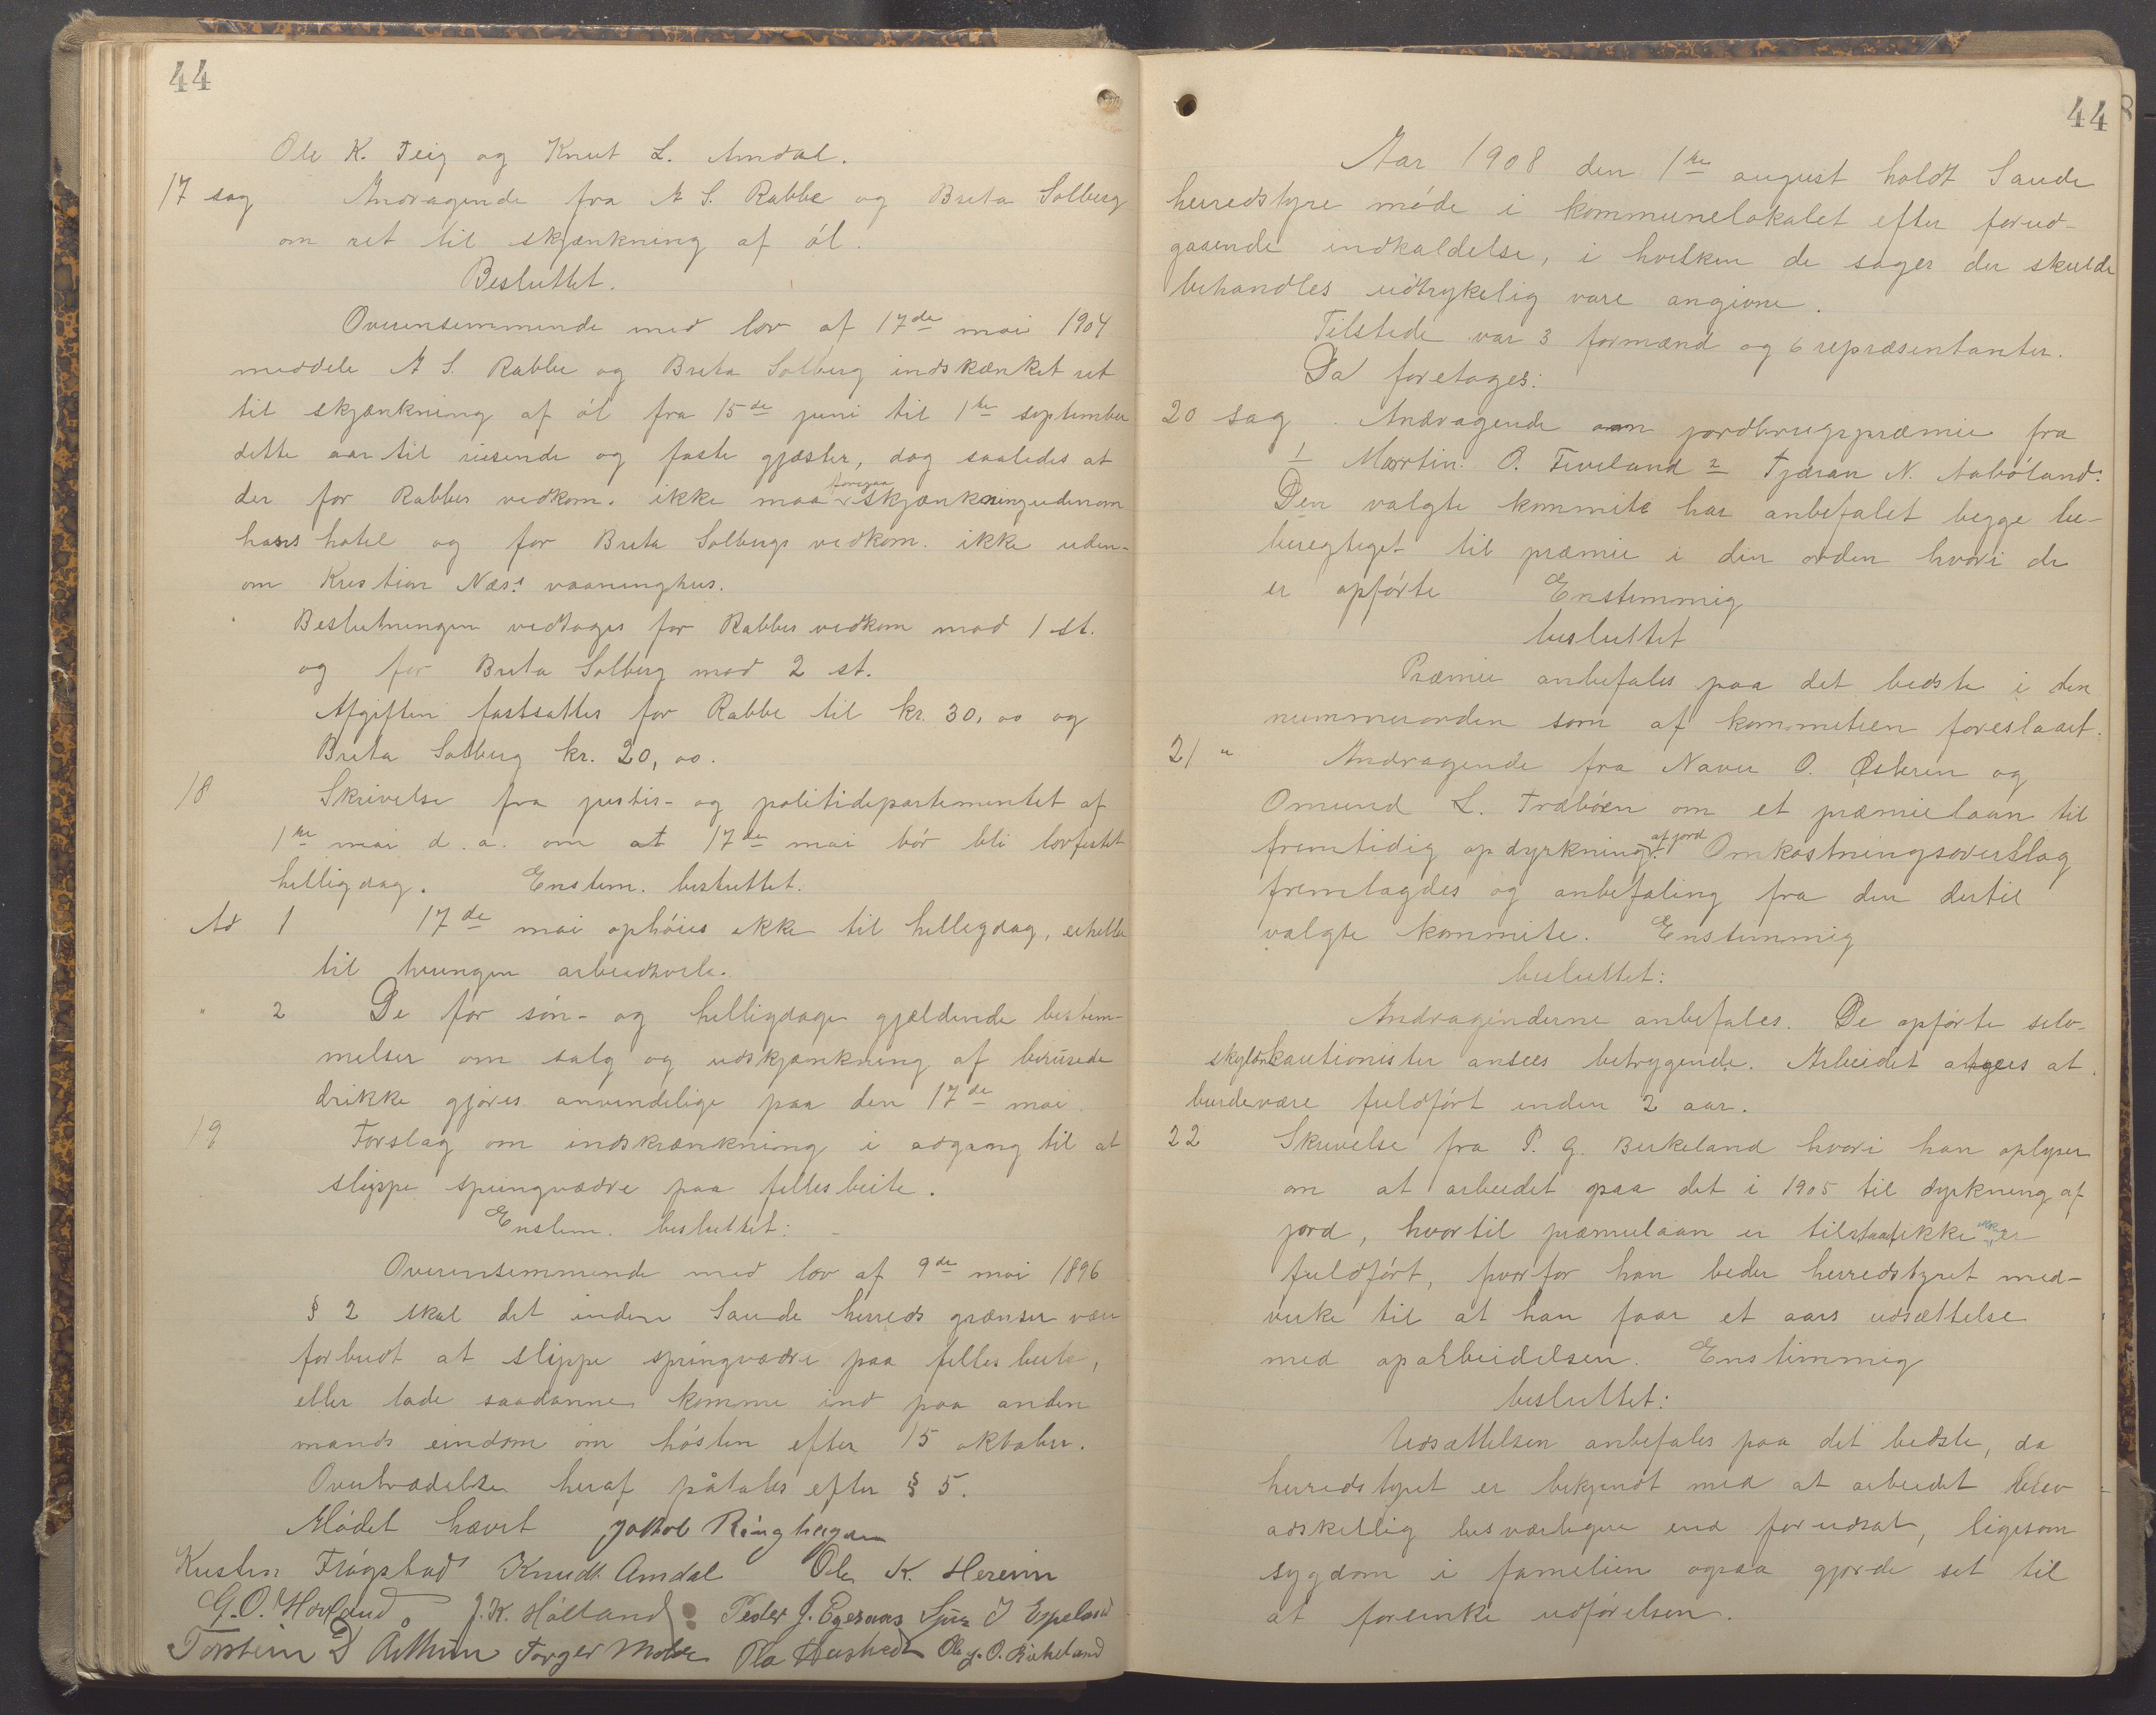 44
Ole K. Teig og Knut L. Amdal.
17 sag Andragende fra A S. Rabbe og Breta Solberg
om ret til skjænkning af øl.
Besluttet.
Overensemmende med lov af 17de mai 1904
meddele A S. Rabbe og Breta Solberg indskænket ret
til skjænkning af øl fra 15de juni til 1ste september
dette aar til reisende og faste gjæster, dog saaledes at
der for Rabbes vedkom. ikke maa foregaa skjænkning udenom
hans hotel og for Breta Solbergs vedkom. ikke uden-
om Kristian Næss vaaninghus.
Beslutningen vedtoges for Rabbes vedkom mod 1 st.
og for Breta Solberg mod 2 st.
Afgiften fastsattes for Rabbe til kr. 30,00 og
Breta Solberg kr. 20,00.
18 Skrivelse fra justis- og politidepartementet af
1ste mai d.a. om at 17de mai bør bli lovfestet
helligdag. Enstem. besluttet.
Ad 1 17de mai ophøies ikke til helligdag, eiheller
til tvungen arbeidshvile.
" 2 De for søn- og helligdage gjældende bestem-
melser om salg og udskjænkning af berusede
drikke gjøres anvendelige paa den 17de mai.
19 Forslag om indskrænkning i adgang til at
slippe springvædre paa felles beite.
Enstem. besluttet:
Overensemmende med lov af 9de mai 1896
§ 2 skal det inden Saude herreds grænser være
forbudt at slippe springvædre paa felles beite,
eller lade saadanne komme ind paa anden
mands eindom om høsten efter 15 oktober.
Overtrædelse heraf påtales efter § 5.
Mødet hævet Jakob Ringhagen
Kristen Frøgstad Knudt Amdal Ole K. Hereim
G.O. Hovland J.K. Hålland Peder J. Egeraas J Espeland
Torstein Torger Ola Ole g. O. Birkeland
44
Aar 1908 den 1ste august holdt Saude
herredstyre møde i kommunelokalet efter forud-
gaaende indkaldelse, i hvilken de sager der skulde
behandles udtrykelig vare angivne.
Tilstede var 3 formænd og 6 repræsentanter.
Da foretages:
20 sag. Andragende om jordbrugspræmie fra
1 Martin O. Tveiland 2 Tjæran N. Aabøland.
Den valgte kommite har anbefalet begge be-
beregtiget til præmie i den orden hvori de
er opførte Enstemmig
besluttet
Præmie anbefales paa det bedste i den
nummerorden som af kommitteen foreslaaet.
21 " Andragende fra Naver O. Østerein og
Omund L. Træbøen om et præmielaan til
fremtidig opdyrkning af jord. Omkostningsoverslag
fremlagdes og anbefaling fra den dertil
valgte kommite. Enstemmig
besluttet:
Andraginderne anbefales. De opførte selv-
skyldnerkautionister ansees betryggende. Arbeidet at
burdevære fuldført inden 2 aar.
22 Skrivelse fra P. G. Birkeland hvori han oplyser
om at arbeidet paa det i 1905 til dyrkning af
jord, hvortil præmielaan er tilstaaet ikke er
fuldført, hvorfor han beder herredstyret med-
virke til at han faar et aars udsættelse
med oparbeidelsen. Enstimmig
besluttet:
Udsættelsen anbefales paa det bedste, da
herredstyret er bekjendt med at arbeidet blev
adskellig besværligere end forudsat, ligesom
sygdom i familien ogsaa gjorde set til
at forsinke udførelsen.